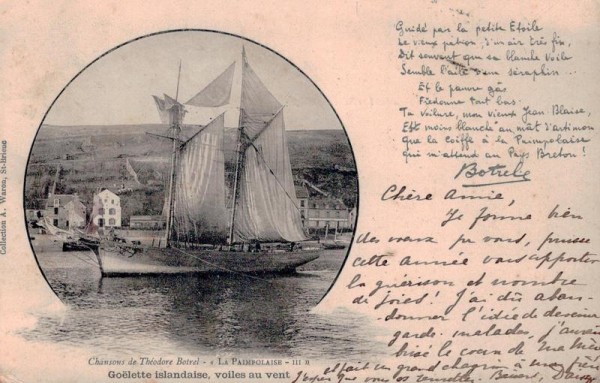 Guidé par la petite Etoile
Le vieux patron, d'un air très fin,
Dit souvent que sa blanche Voile
Semble l'aile d'un séraphin...
Et le pauvre gâs
Fredonne tout bas:
Ta voilure, mon vieux Jean Blaise,
Est moins blanche au mât d'artimon
Que la coiffe à la Paimpolaise
qui m'attend au Pays Breton!
Botrel
Collection A. Waron, St-Brieuc
Chère Amie,
Je forme bien
des vœux pr vous, puisse
cette année vous apporter
la guérison et nombre
de joies! J'ai dû aban-
donner l'idée de devenir
garde-malades, j'aurais
brisé le cœur de ma mère
et fait un grand chagrin à
J'espère que vous Baisers,
Chansons de Théodore Botrel - « LA PAIMPOLAISE - III »
Goëlette islandaise, voiles au vent